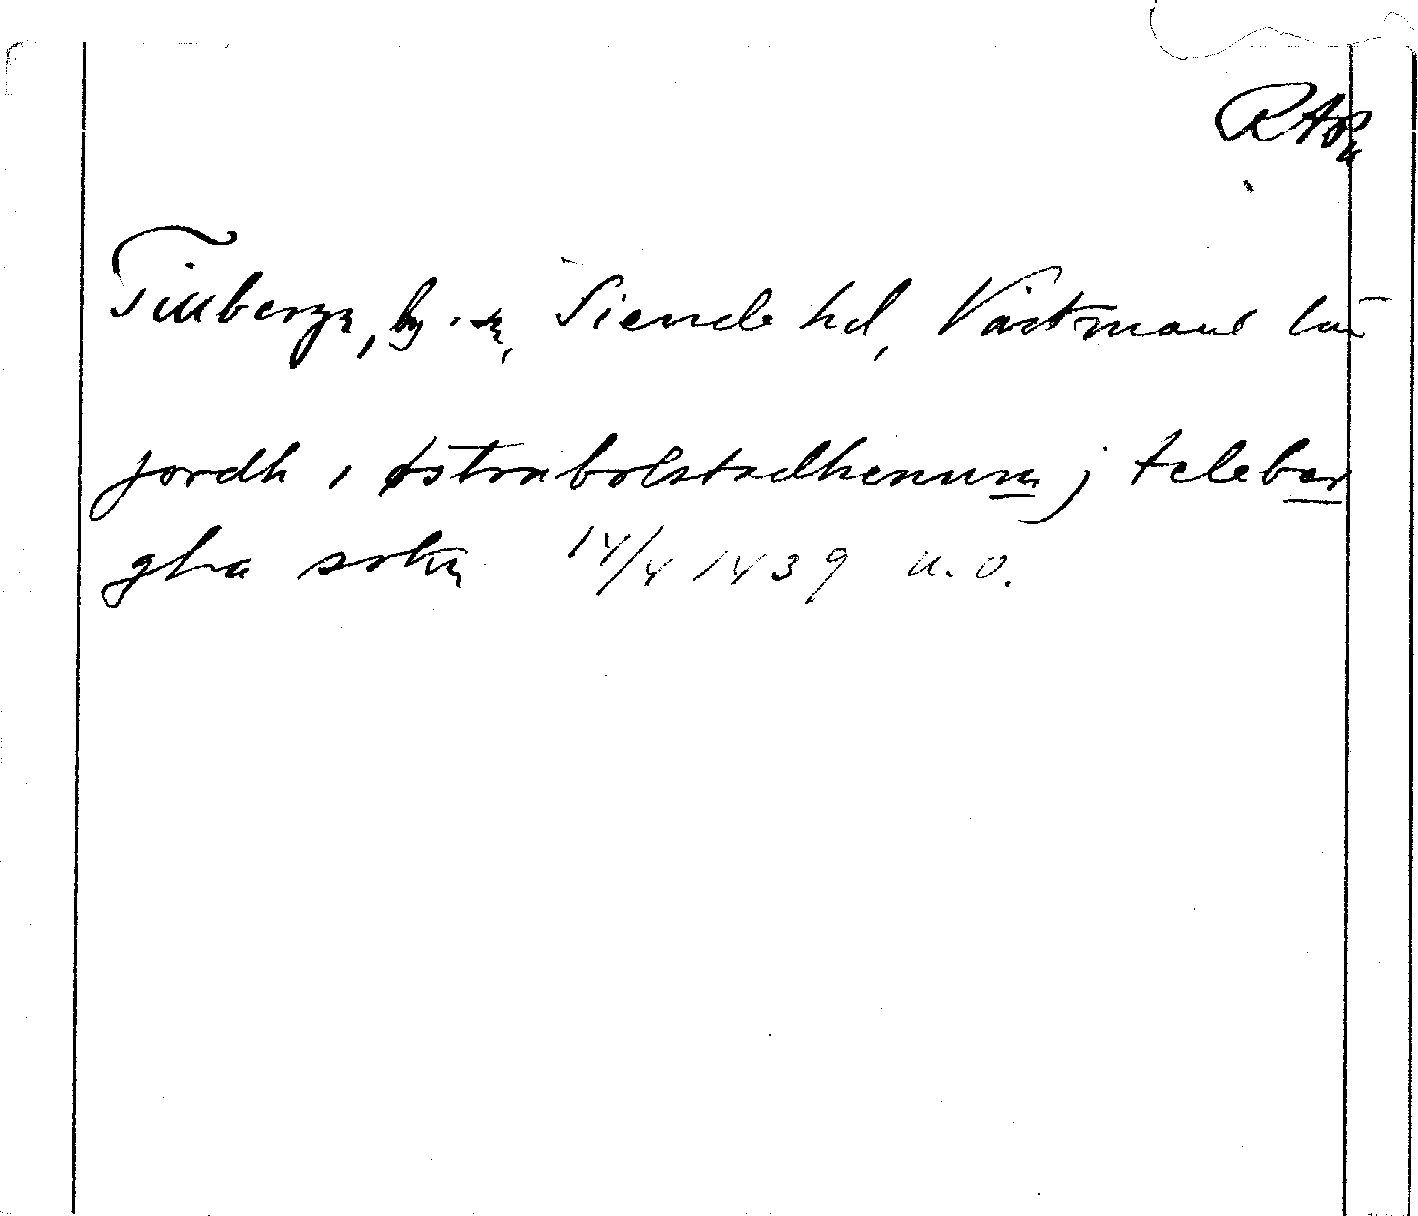 RAp
Tillberga, by o. sn, Siende hd, Västmanl. län
jordh i østrabolstadhenum j teleber
gha sokn 14/4 1439 u. o.